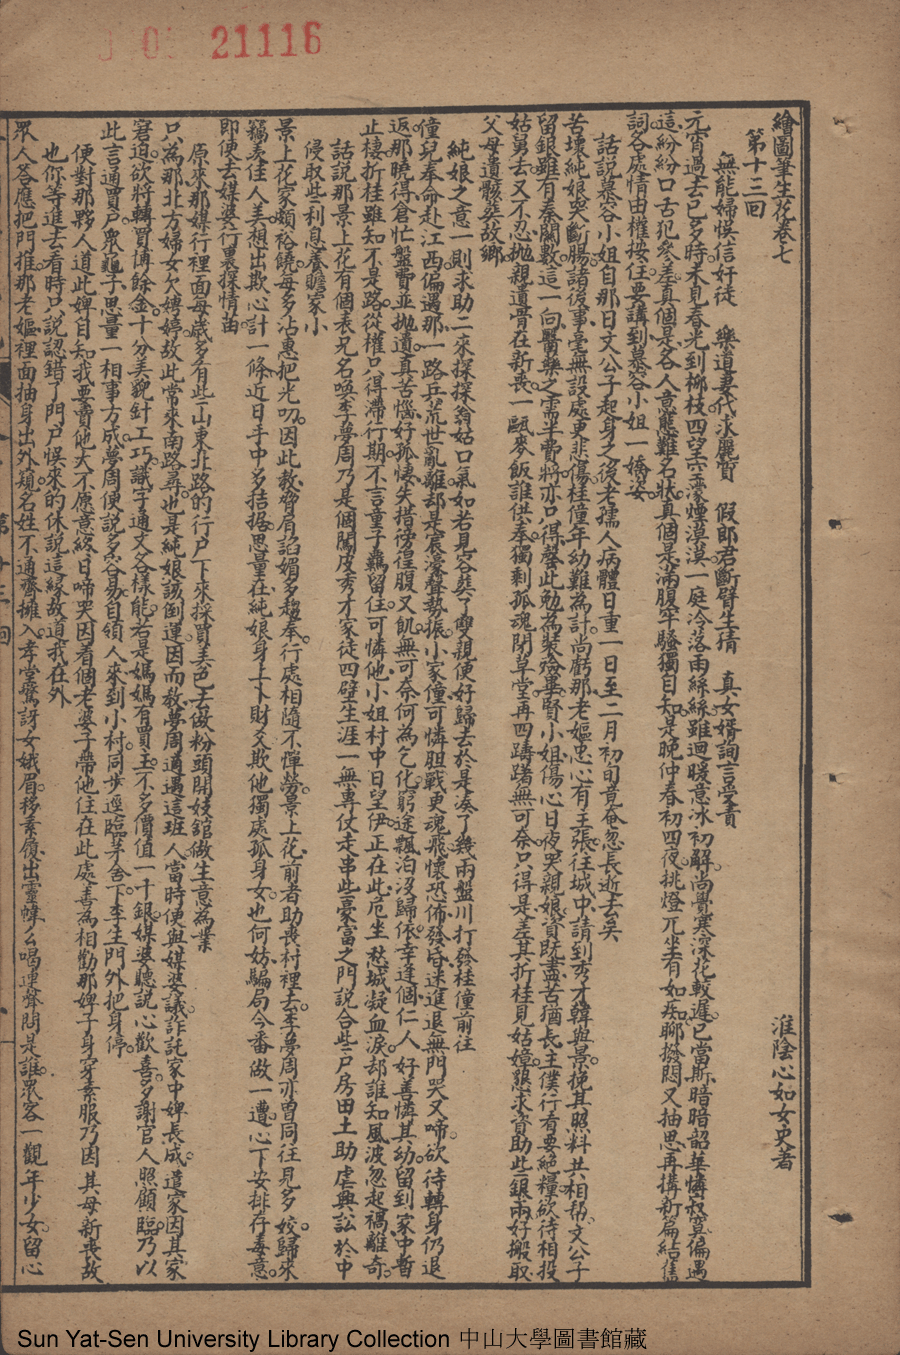 21116
繪圖筆生花卷七
淮陰心如女史著
第十三回
無能婦悞信奸徒　樂道妻代求麗質　假郎君斷臂生猜　真女婿詢言受責
元宵過去已多時未見春光到柳枝四望空濛煙漠漠一庭冷落雨絲絲雖迴暖意冰初解尚覺寒深花較遲已當斯暗暗韶華慵寂寞偏遇
這紛紛口舌犯參差真個是各人意態難名狀真個是滿腹牢騷獨自知是晚仲春初四夜挑燈兀坐有如痴聊撥悶又抽思再搆新篇結舊
詞各處情由權按住要講到慕容小姐一嬌姿
話說慕容小姐自那日文公子起身之後老孺人病體日重一日至二月初旬竟奄忽長逝去矣
苦壞純娘哭斷腸諸後事毫無設處更悲傷桂僮年幼難為計尚虧那老嫗忠心有主張往城中請到秀才韓與景挽其照料共相幫文公子
留銀雖有秦關數這一向醫藥之需半費將亦只得罄此勉為裝殮畢賢小姐傷心日夜哭親娘資財盡苦猶長主僕行看要絕糧欲待相投
姑舅去又不忍拋親遺骨在新喪一甌麥飯誰供奉獨剩孤魂閉草堂再四躊躇無可奈只得是差其折桂見姑嫜懇求資助些銀兩好搬取
父母遺骸葬故鄉
純娘之意一則求助二來探探翁姑口氣如若見容葬了雙親便好歸去於是湊了幾兩盤川打發桂僮前往
僮兒奉命赴江西偏遇那一路兵荒世亂離却是宸濠聲勢振小家僮可憐胆戰更魂飛懷恐怖發昏迷進退無門哭又啼欲待轉身仍退
返那曉得倉忙盤費並拋遺真苦惱好孤悽失措徬徨腹又飢無可奈何為乞化窮途飄泊沒歸依幸逢個仁人好善憐其幼留到家中暫
止棲折桂雖知不是路從權只得滯行期不言童子羈留住可憐他小姐村中日望伊正在此危坐愁城凝血淚却誰知風波忽起禍離奇
話說那景上花有個表兄名喚李夢周乃是個闖皮秀才家徒四壁生涯一無專仗走串些豪富之門說合些戶房田土助虐興訟於中
侵取些利息養贍家小
景上花家頗裕饒每多沾惠把光叨因此教脅肩諂媚多趨奉行處相隨不憚勞景上花前者助喪村裡去李夢周亦曾同往見多姣歸來
竊羨佳人美想出欺心計一條近日手中多拮据思量在純娘身上卜財爻欺他獨處孤身女也何妨騙局今番做一遭心下安排存毒意
即便去媒婆行裏探情苗
原來那媒行裡面每歲多有些山東北路的行戶下來採買美色去做粉頭開妓館做生意為業
只為那北方婦女欠娉婷故此常來南路尋也是純娘該倒運因而教夢周適遇這班人當時便與媒婆議詐託家中婢長成遣家因其家
窘迫欲將轉買博餘金十分美貌針工巧識字通文各樣能若是媽媽有買主不多價值一千銀媒婆聽說心歡喜多謝官人照顧臨乃以
此言通買戶眾龜子思量一相事方成夢周便說多容易自領人來到小村同步逕臨茅舍下李生門外把身停
便對那夥人道此婢自知我要賣他大不愿意終日啼哭因着個老婆子帶他住在此處善為相勸那婢子身穿素服乃因其母新喪故
也你等進去看時只說認錯了門戶悞來的休說這緣故道我在外
眾人答應把門推那老嫗裡面抽身出外窺名姓不通齊擁入孝堂驚訝女娥眉移素履出靈幃么喝連聲問是誰眾客一觀年少女留心
第十三回
Sun Yat-Sen University Library Collection 中山大學圖書館藏